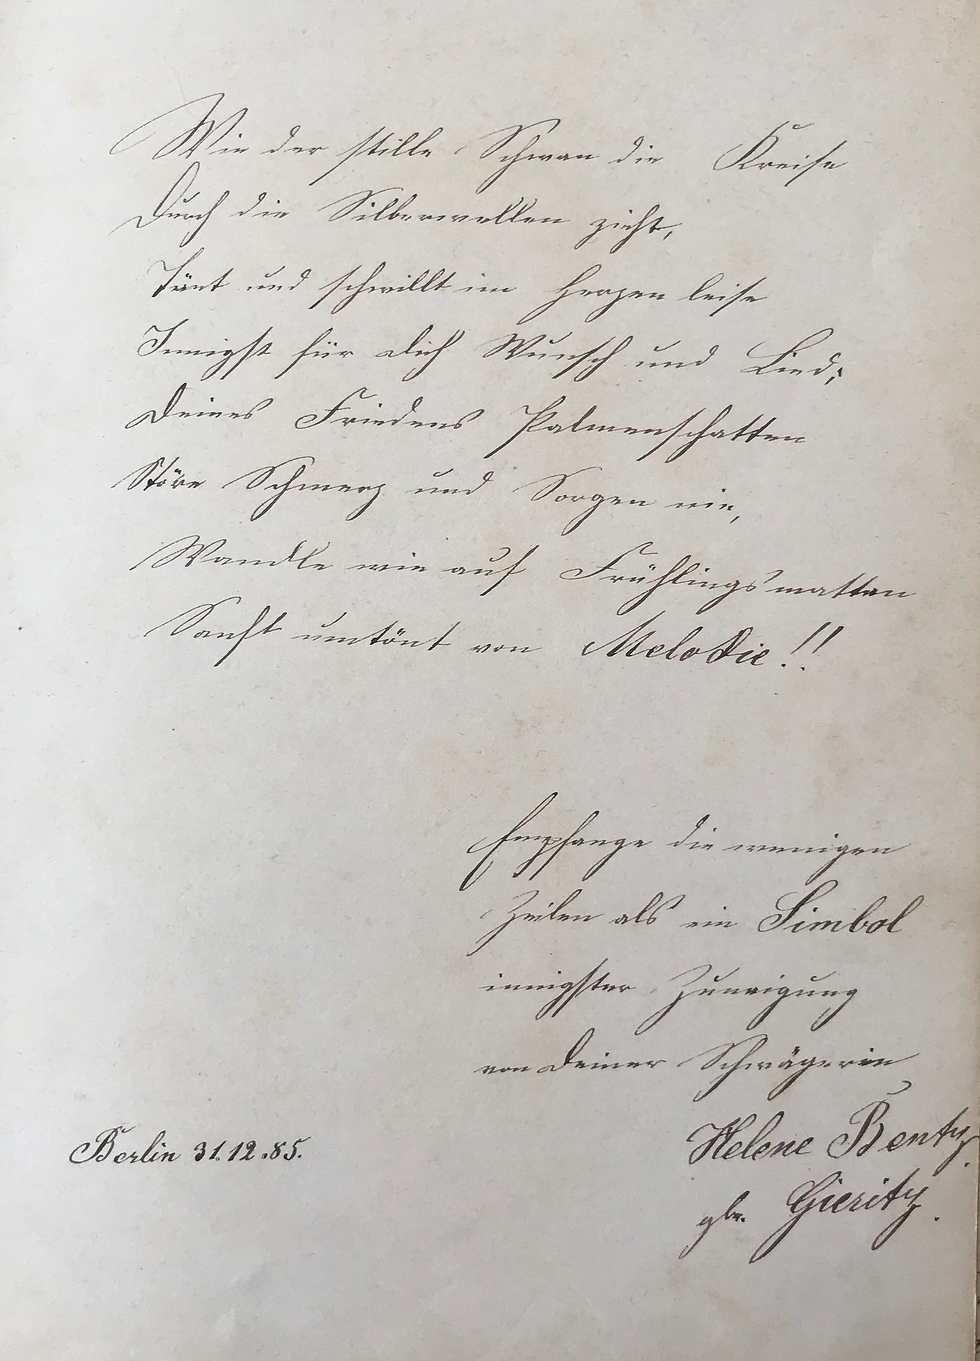 Wie der stille Schwan die Kreise
Durch die Silberwellen zieht,
Tönt und schwillt im Herzen leise
Innigst für dich Wunsch und Lied;
Deines Friedens Palmenschatten
Störe Schmerz und Sorgen nie,
Wandle wie auf Frühlingsmatten
Sanft umtönt von Melodie!!
Empfange die wenigen
Zeilen als ein Simbol
innigster Zuneigung
von deiner Schwägerin
Helene Benty.
Berlin 31.12.85.
gbr. Gieritz.